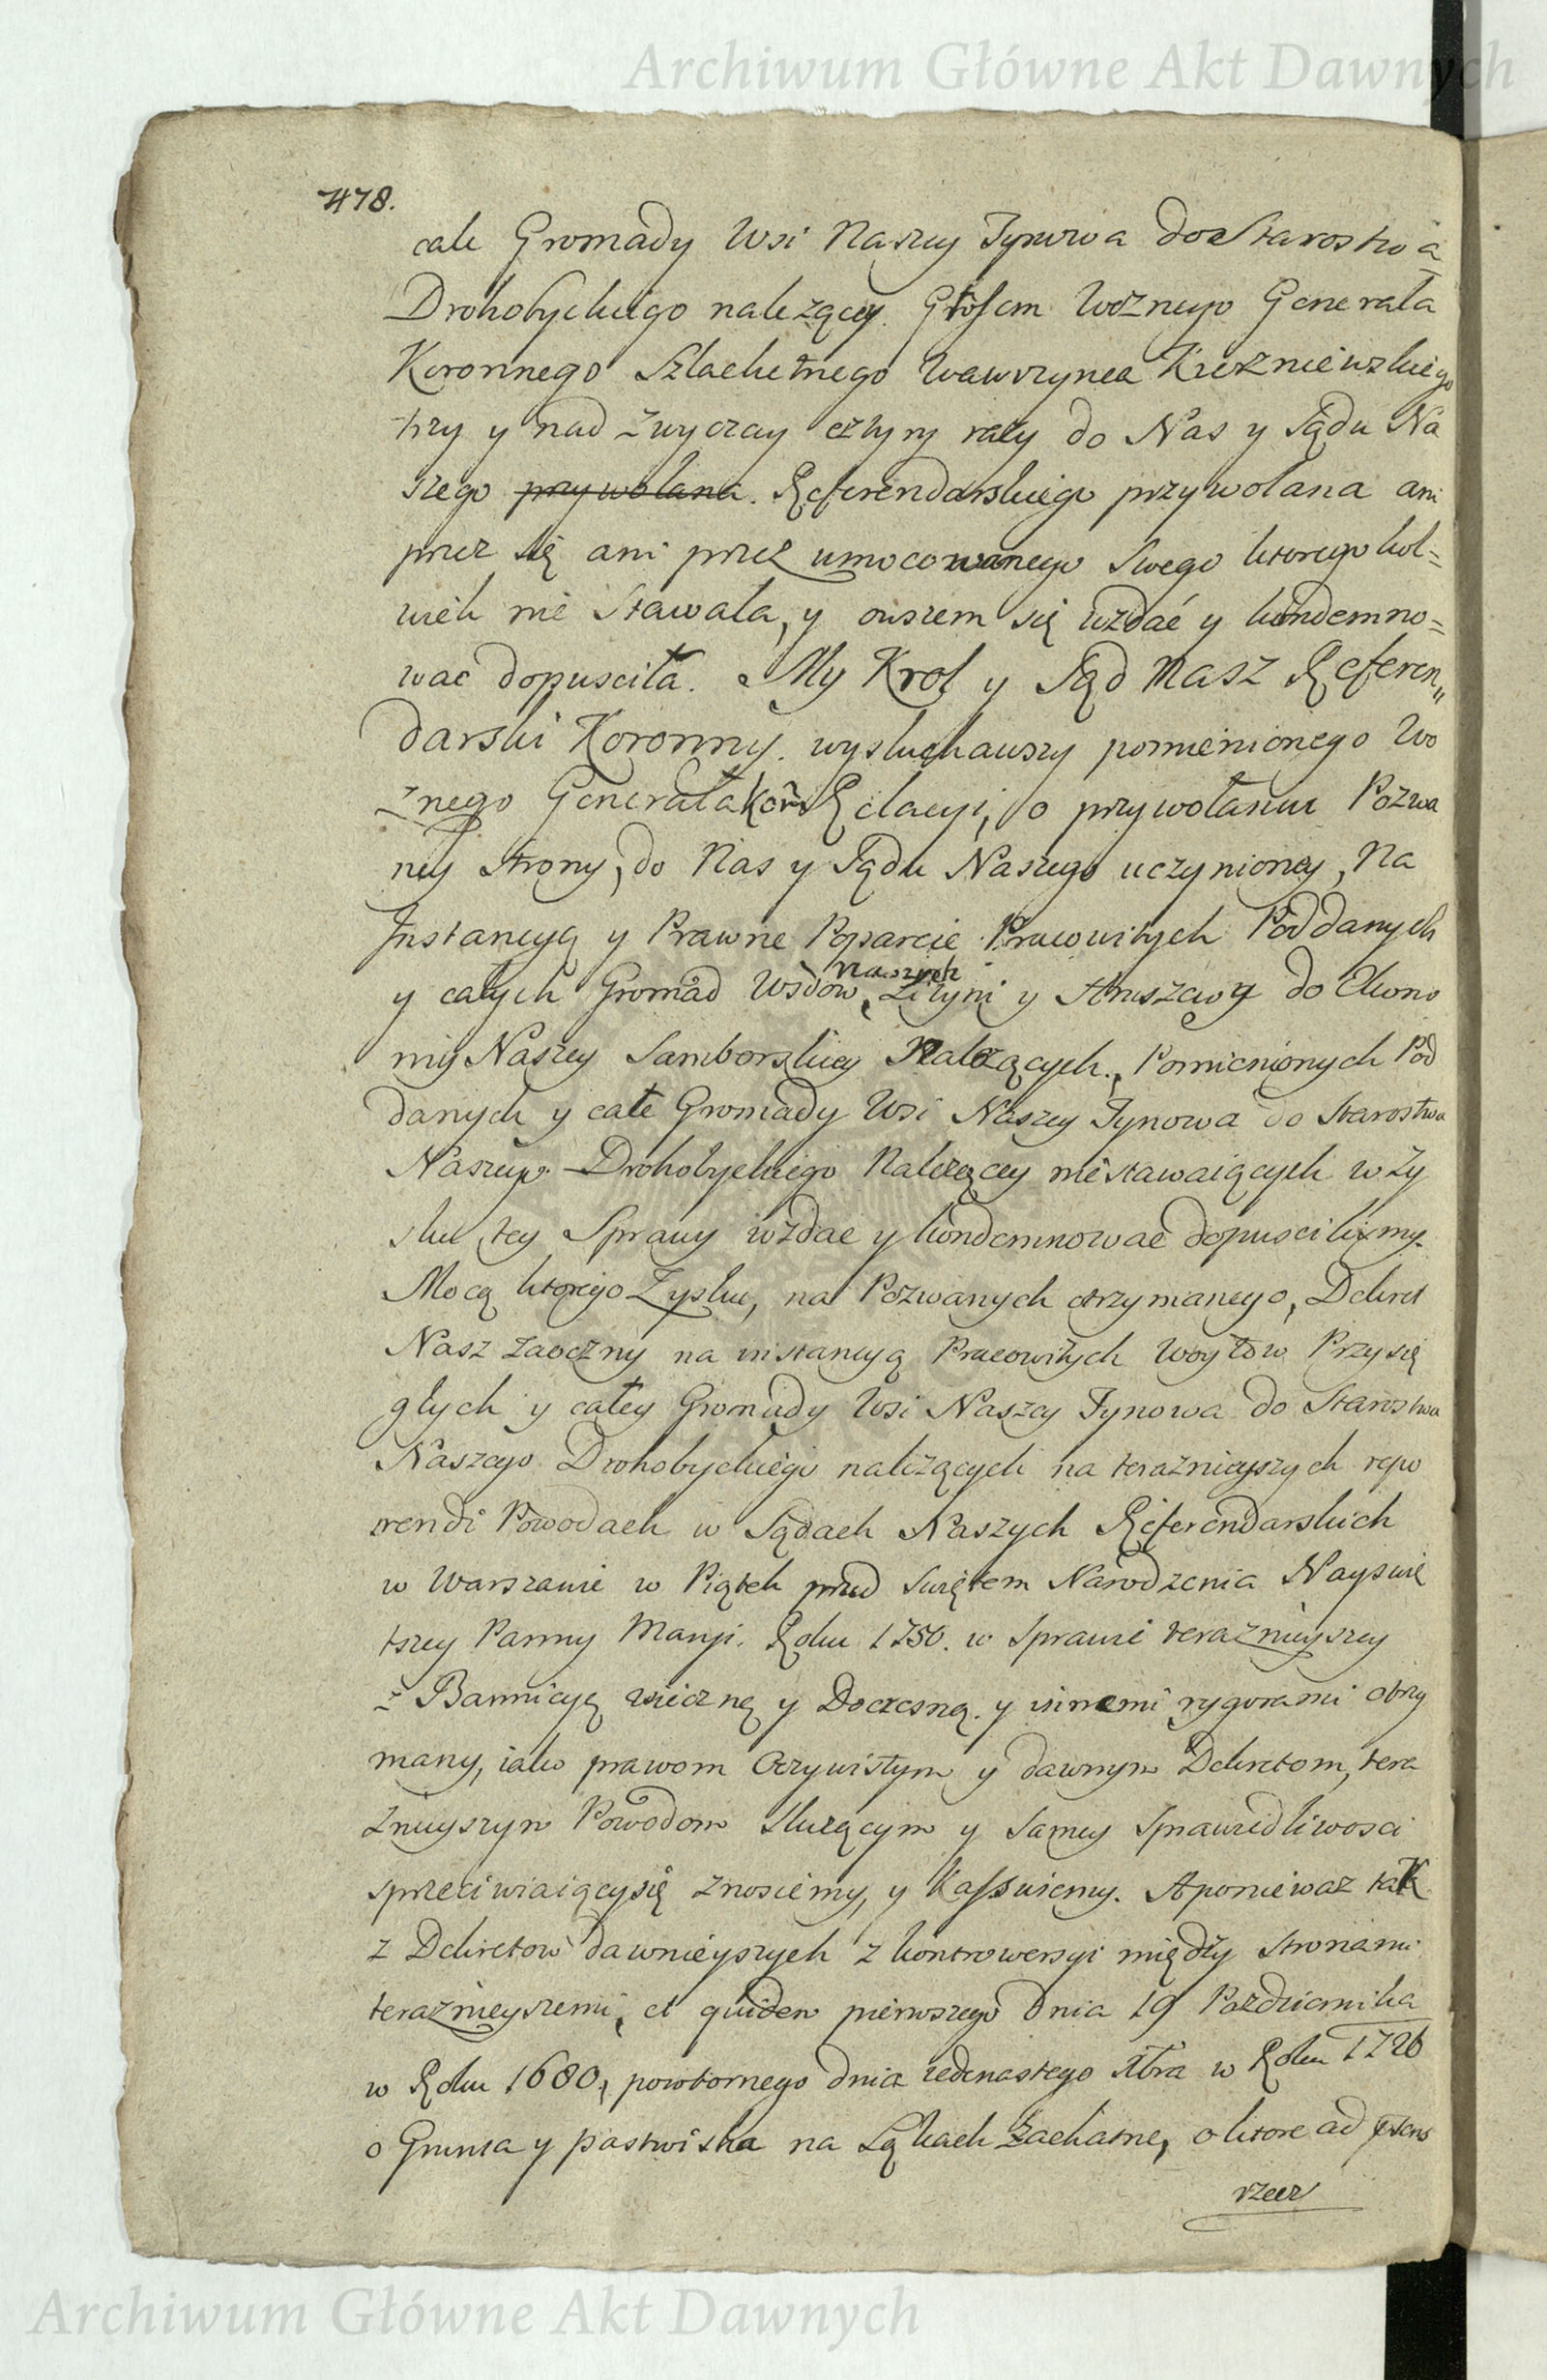 Archiwum Główne Akt Dawnych
478.
cale Gromady Wsi Naszey Tynowa do Starostwa
Drohobyckiego należący. Głosem Woznego Generała
Koronnego Szlachetnego Wawrzynca
trzy y nad zwyczay cztyry razy do Nas y Sądu Na
szego przywołana. Referendarskiego przywołana ani
przez się ani przez umocowanego Swego ktorego kol=
wiek nie Stawała, y owszem się wzdać y kondemno=
wac dopusciła. My Krol y Sąd Nasz Referen„
darski Koronny. wysłuchawszy pomienionego Wo
znego Generała Kor̃ Relacyi, o przywołaniu Pozwa
ney Strony, do Nas y Sądu Naszego uczynioney, Na
Instancyą y Prawne Poparcie Pracowitych Poddanych
naszych
y całych Gromad Wsiow, Lityni y Hruszowy do Ekono
mij Naszey Samborskiey Należących., Pomienionych Pod
danych y całe Gromady Wsi Naszey Tynowa do Starostwa
Naszego Drohobyckiego Należącey niestawaiących w Zy
sku tey Sprawy wzdac y kondemnowac dopuscilismy.
Mocą ktorego Zysku, na Pozwanych otrzymanego, Dekret
Nasz zaoczny na instancyą Pracowitych Woytow Przysię
głych y całey Gromady Wsi Naszey Tynowa do Starostwa
Naszego Drohobyckiego należących na teraznieyszych repo
rendi Powodach w Sądach Naszych Referendarskich
w Warszawie w Piątek przed Swiętem Narodzenia Nayswię
tszey Panny Maryi. Roku 1750. w Sprawie teraznieyszey
z Bannicyą wieczną y Doczesną. y innemi rygorami otrzy
many, iako prawom Oczywistym y dawnym Dekretom, tera
znieyszym Powodom służącym y samey Sprawiedliwosci
sprzeciwiaiącysię znosiemy, y Kassuiemy. Aponiewaz tak
z Dekretow dawnieyszych z kontrowersyi między Stronami
teraznieyszemi, et quidem pierwszego Dnia 19 Pazdziernika
w Roku 1680, powtornego dnia iedenastego Xbra w Roku 1726
o Grunta y pastwiska na Łąkach Zachatne, o ktore ad praesens
rzecz
Archiwum Główne Akt Dawnych